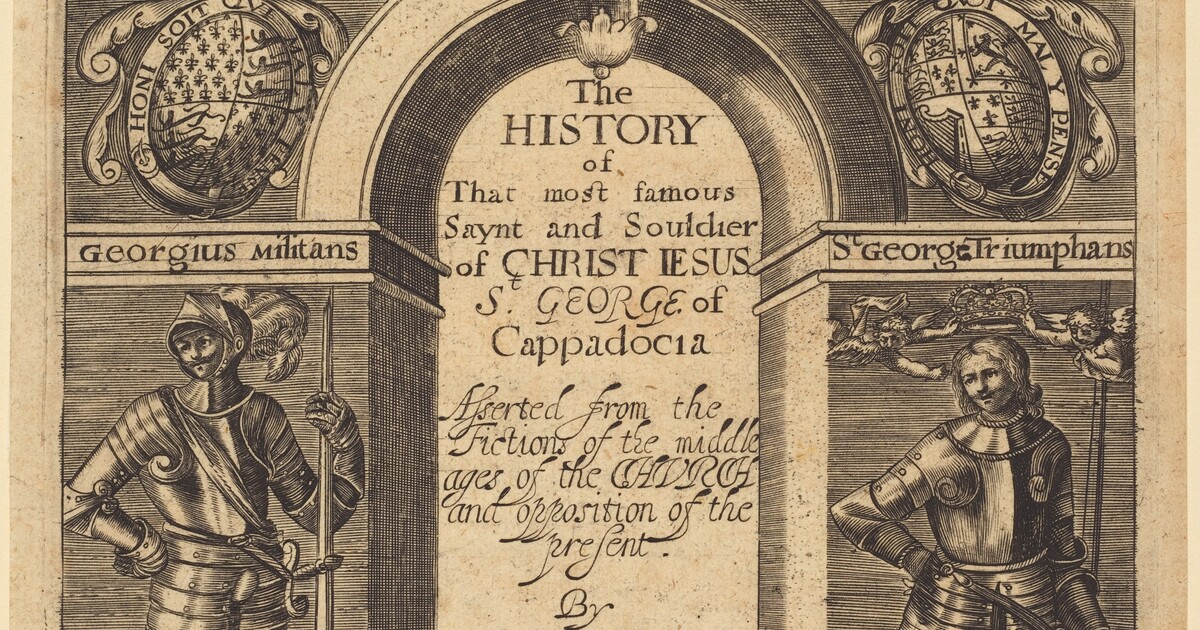 HONI SOIT QVI
HONI SOIT MAL Y PENSE
The
HISTORY
of
That most famous
Saynt and Souldier
of CHRIST IESUS
St. GEORGE. of
Cappadocia
Georgius Militans
St George Triumphans
Asserted from the
Fictions of the middle
ages of the CHVRCH
and opposition of the
present.
By